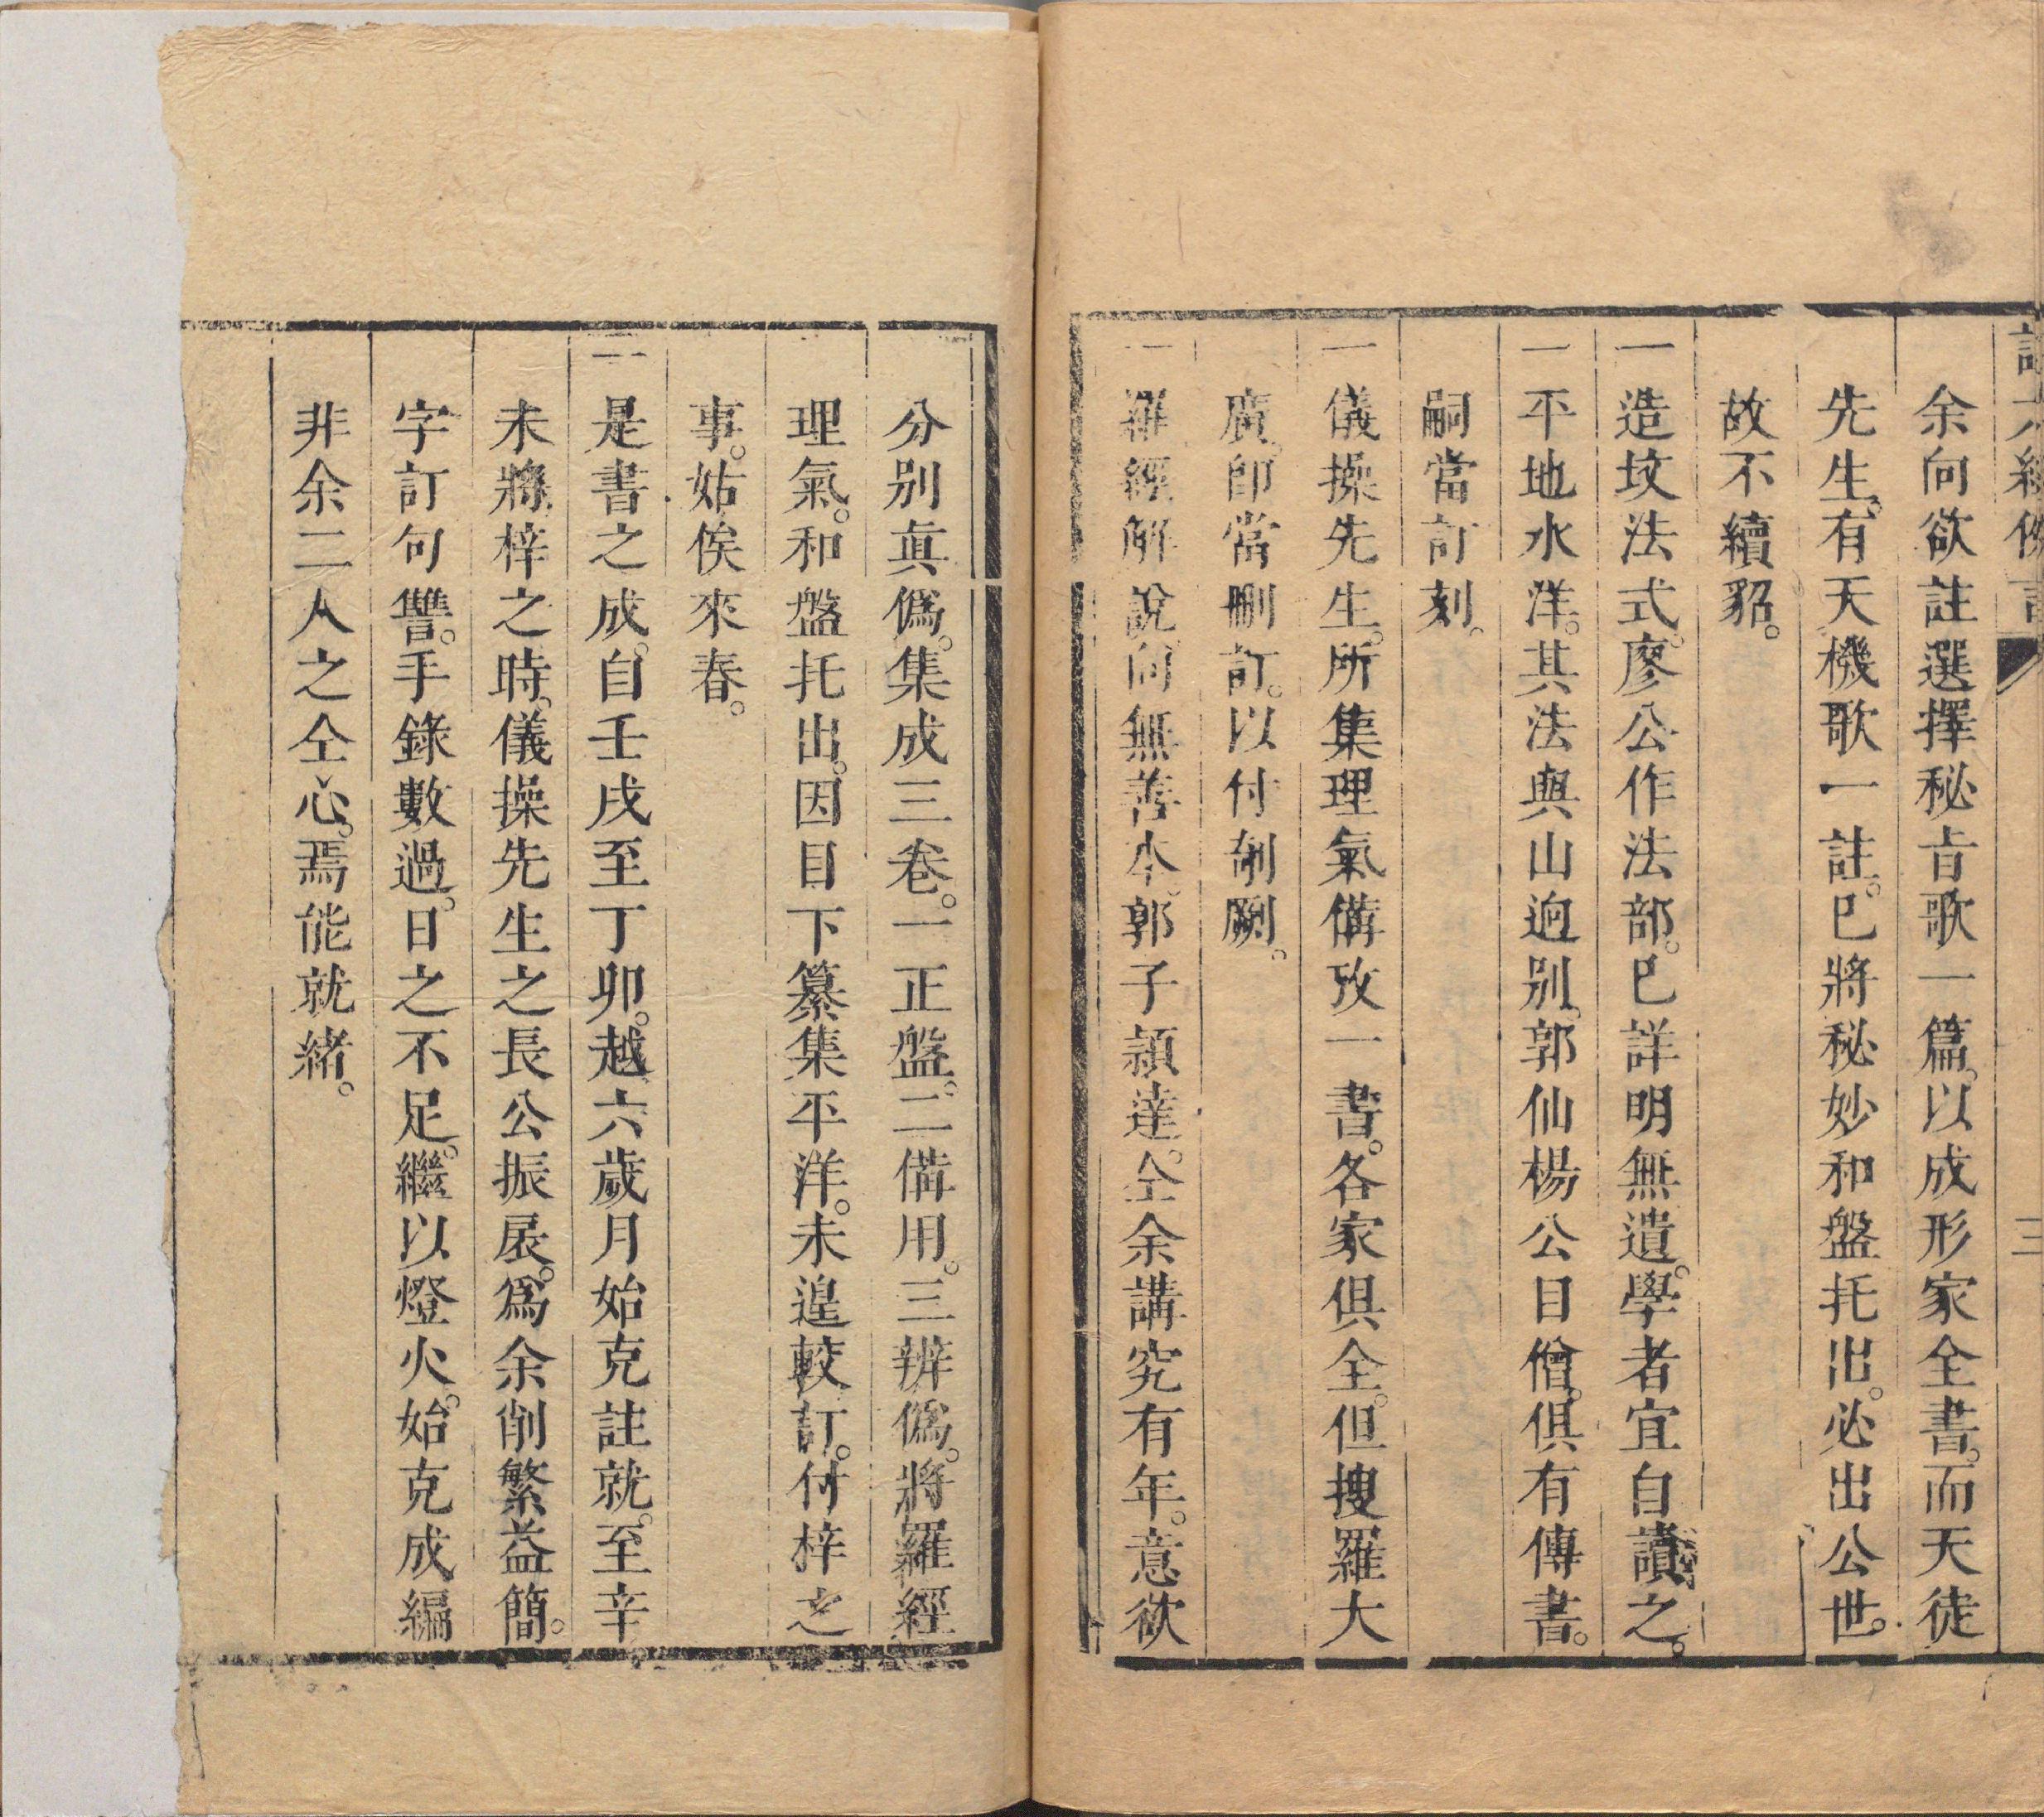 三
余向欲註選擇秘旨歌一篇。以成形家全書。而天徒
先生。有天機歌一註。已將秘妙和盤托出。必出公世。
故不續貂。
一造坟法式。廖公作法部。已詳明無遺。學者宜自讀之。
一平地水洋。其法與山逈别。郭仙楊公目僧。俱有傳書。
嗣當訂刻。
一儀操先生。所集理氣備攷一書。各家俱全。但搜羅大
廣。卽當刪訂。以付剞劂。
一羅經解說。向無善本。郭子頴達。仝余講究有年。意欲
分别眞僞。集成三卷。一正盤。二備用。三辨僞。將羅經
理氣。和盤托出。因目下纂集平洋。未遑較訂。付梓之
事。姑俟來春。
一是書之成。自壬戌至丁卯。越六歲月始克註就。至辛
未將梓之時。儀操先生之長公振扆。爲余削繁益簡。
字訂句讐。手錄數過。日之不足。繼以燈火。始克成編
非余二人之仝心。焉能就緒。